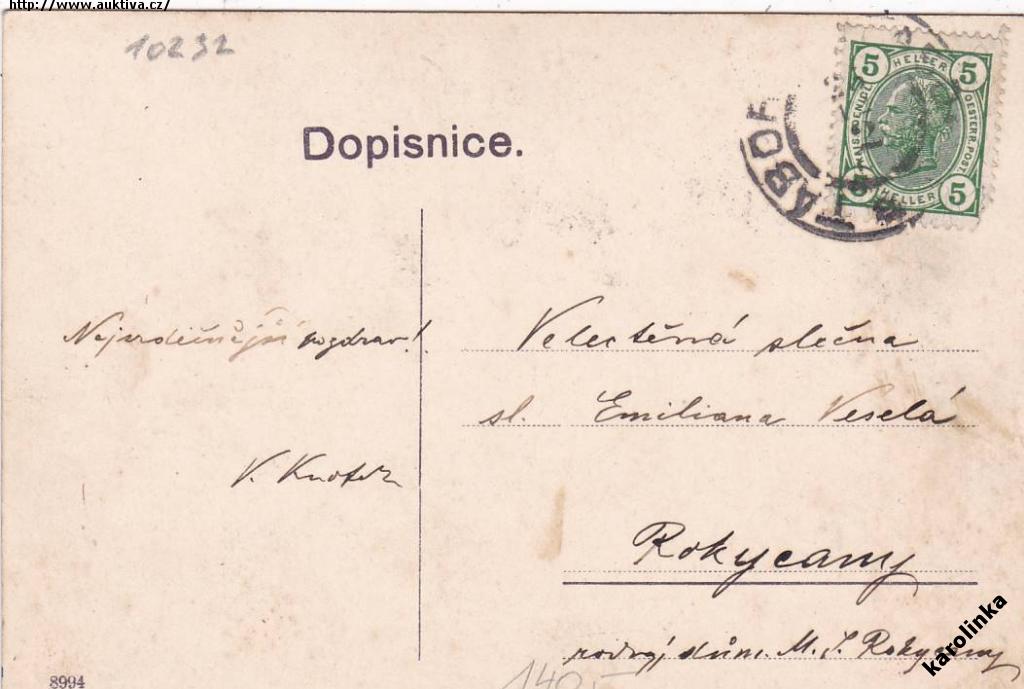 http://www.auktiva.cz/
10232
Dopisnice.
5 HELLER 5
KAIS. KÖNIGL. OESTERR. POST
5 HELLER 5
TABOR
Nejsrdečnější pozdrav!
V. Knotek
Velectěná slečna
sl. Emiliana Veselá
Rokycany
dům. M. J. Rokycany
karolinka
8994
140,-